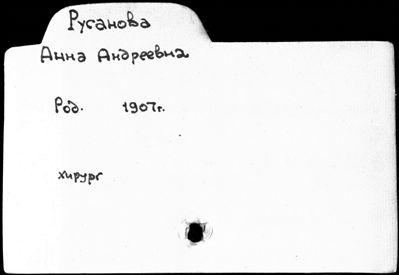 Русанова
Анна Андреевна
Род. 1907г.
хирург